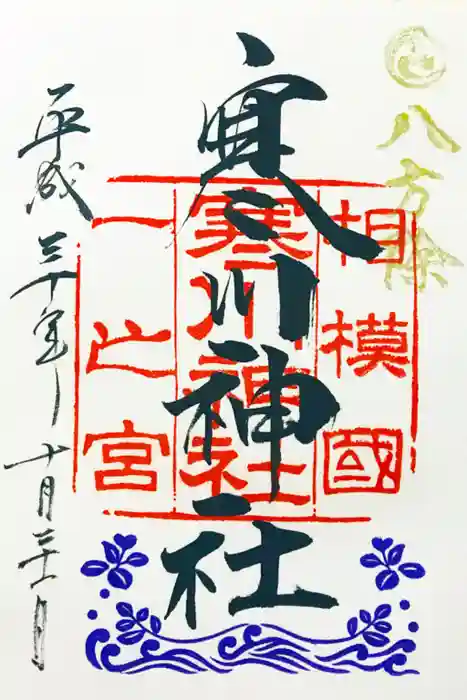 八方除
相模國
寒川神社
一之宮
寒川神社
平成三十年十月三十一日